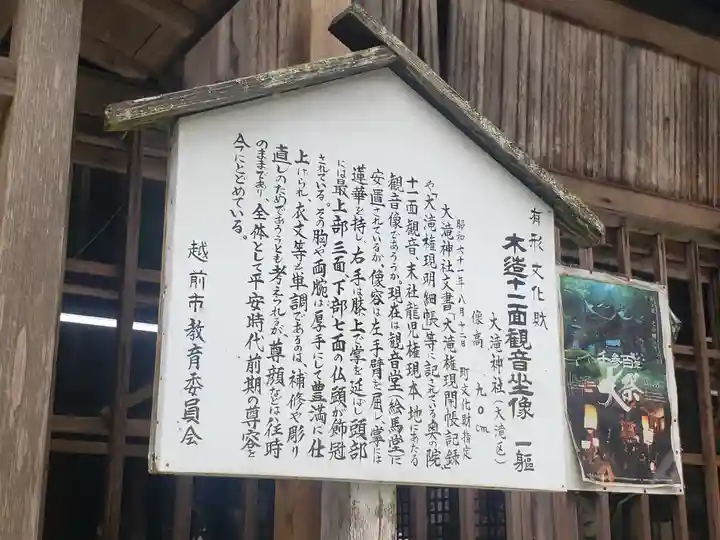 有形文化財
木造十一面観音坐像 一軀
大滝神社(大滝区)
像高 九〇cm
昭和六十一年八月十二日 町文化財指定
大滝神社文書「大滝権現開帳記録」
や「大滝権現明細帳」等に記されている奥の院
十一面観音、末社龍児権現本地にあたる
観音像であろうか。現在は観音堂(絵馬堂)に
安置されているが、像容は左手臂を屈し掌には
蓮華を持し、右手は膝上で掌を延ばし頭部
には最上部三面、下部七面の仏頭が飾冠
されている。その胸や両腕は厚手にして豊満に仕
上げられ、衣文等が単調であるのは、補修や彫り
直しのためであろうとも考えられるが、尊顔などは往時
のままであり、全体として平安時代前期の尊容を
今にとどめている。
越前市教育委員会
大祭